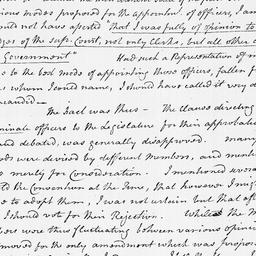 rious modes proposed for the appointmt of officers, I am
ould not have asserted "that I was fully of opinion to
dges of the sup: Court, not only Clerks, but all other o
Government" Had such a Representation of m
s to the best mode of appointing these officers, fallen f
s whom I could name, I should have called it very d
The fact was thus — The clauses directing
minate officers to the Legislature for their approbatio
ted debated, was generally disapproved. many
ods were devised by different Members, and ment
merely for Consideration. I mentioned several
to the Convention at the Time, that however I might
to adopt them, I was not certain but that aft
I should vote for their Rejection. While the M
ers were thus fluctuating between various opinio
moved for the only amendment which was propos